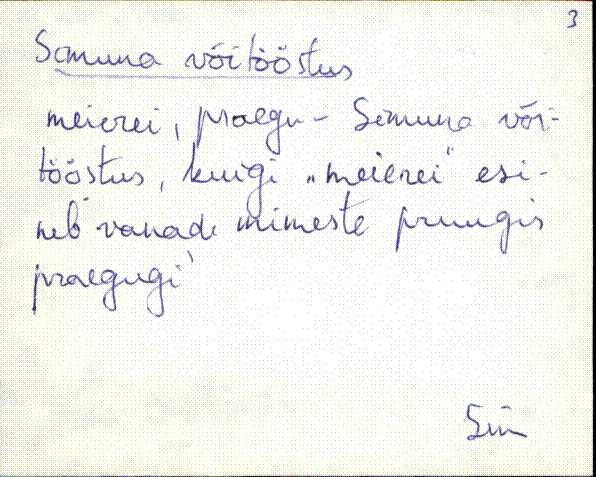 3
Simuna võitööstus
meierei, praegu - Simuna või-
tööstus, kuigi „meierei“ esi-
neb vanade inimeste pruugis
praegugi
Sim